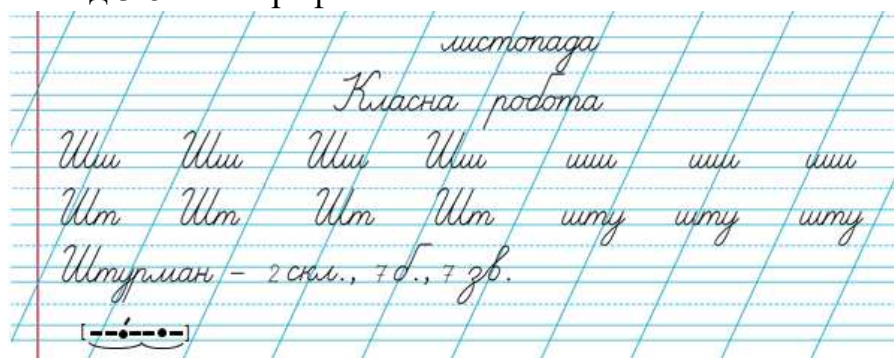 листопада
Класна робота
Шш Шш Шш Шш шш шш шш
Шт Шт Шт Шт шту шту шту
Штурман – 2 скл., 7 б., 7 зв.
[– – •́ – – • –]